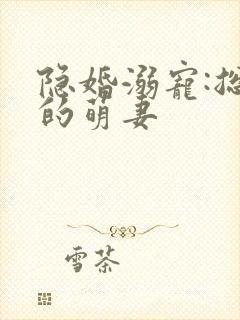 隐婚溺宠:总
的萌妻
雪茶